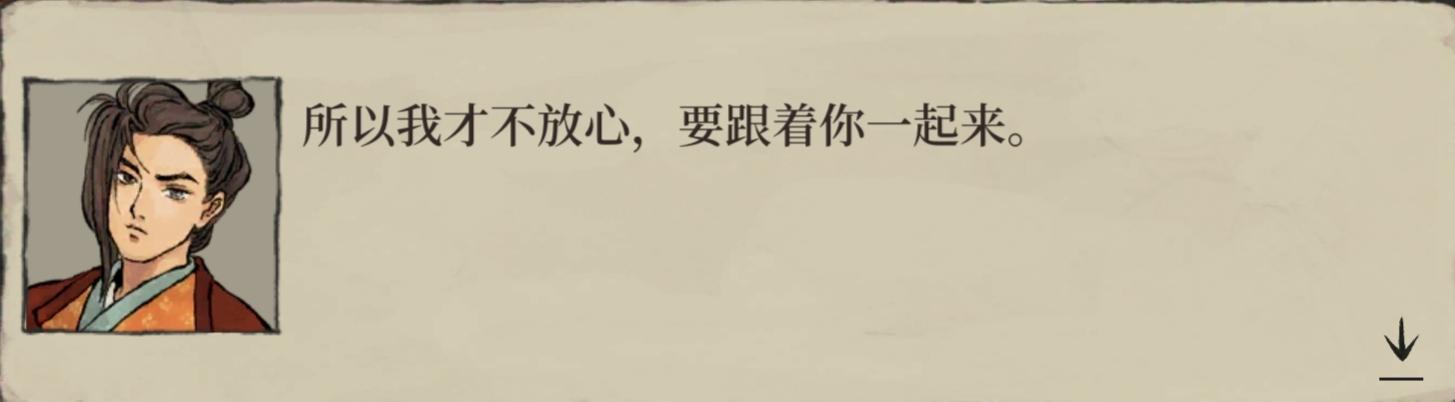 所以我才不放心，要跟着你一起来。